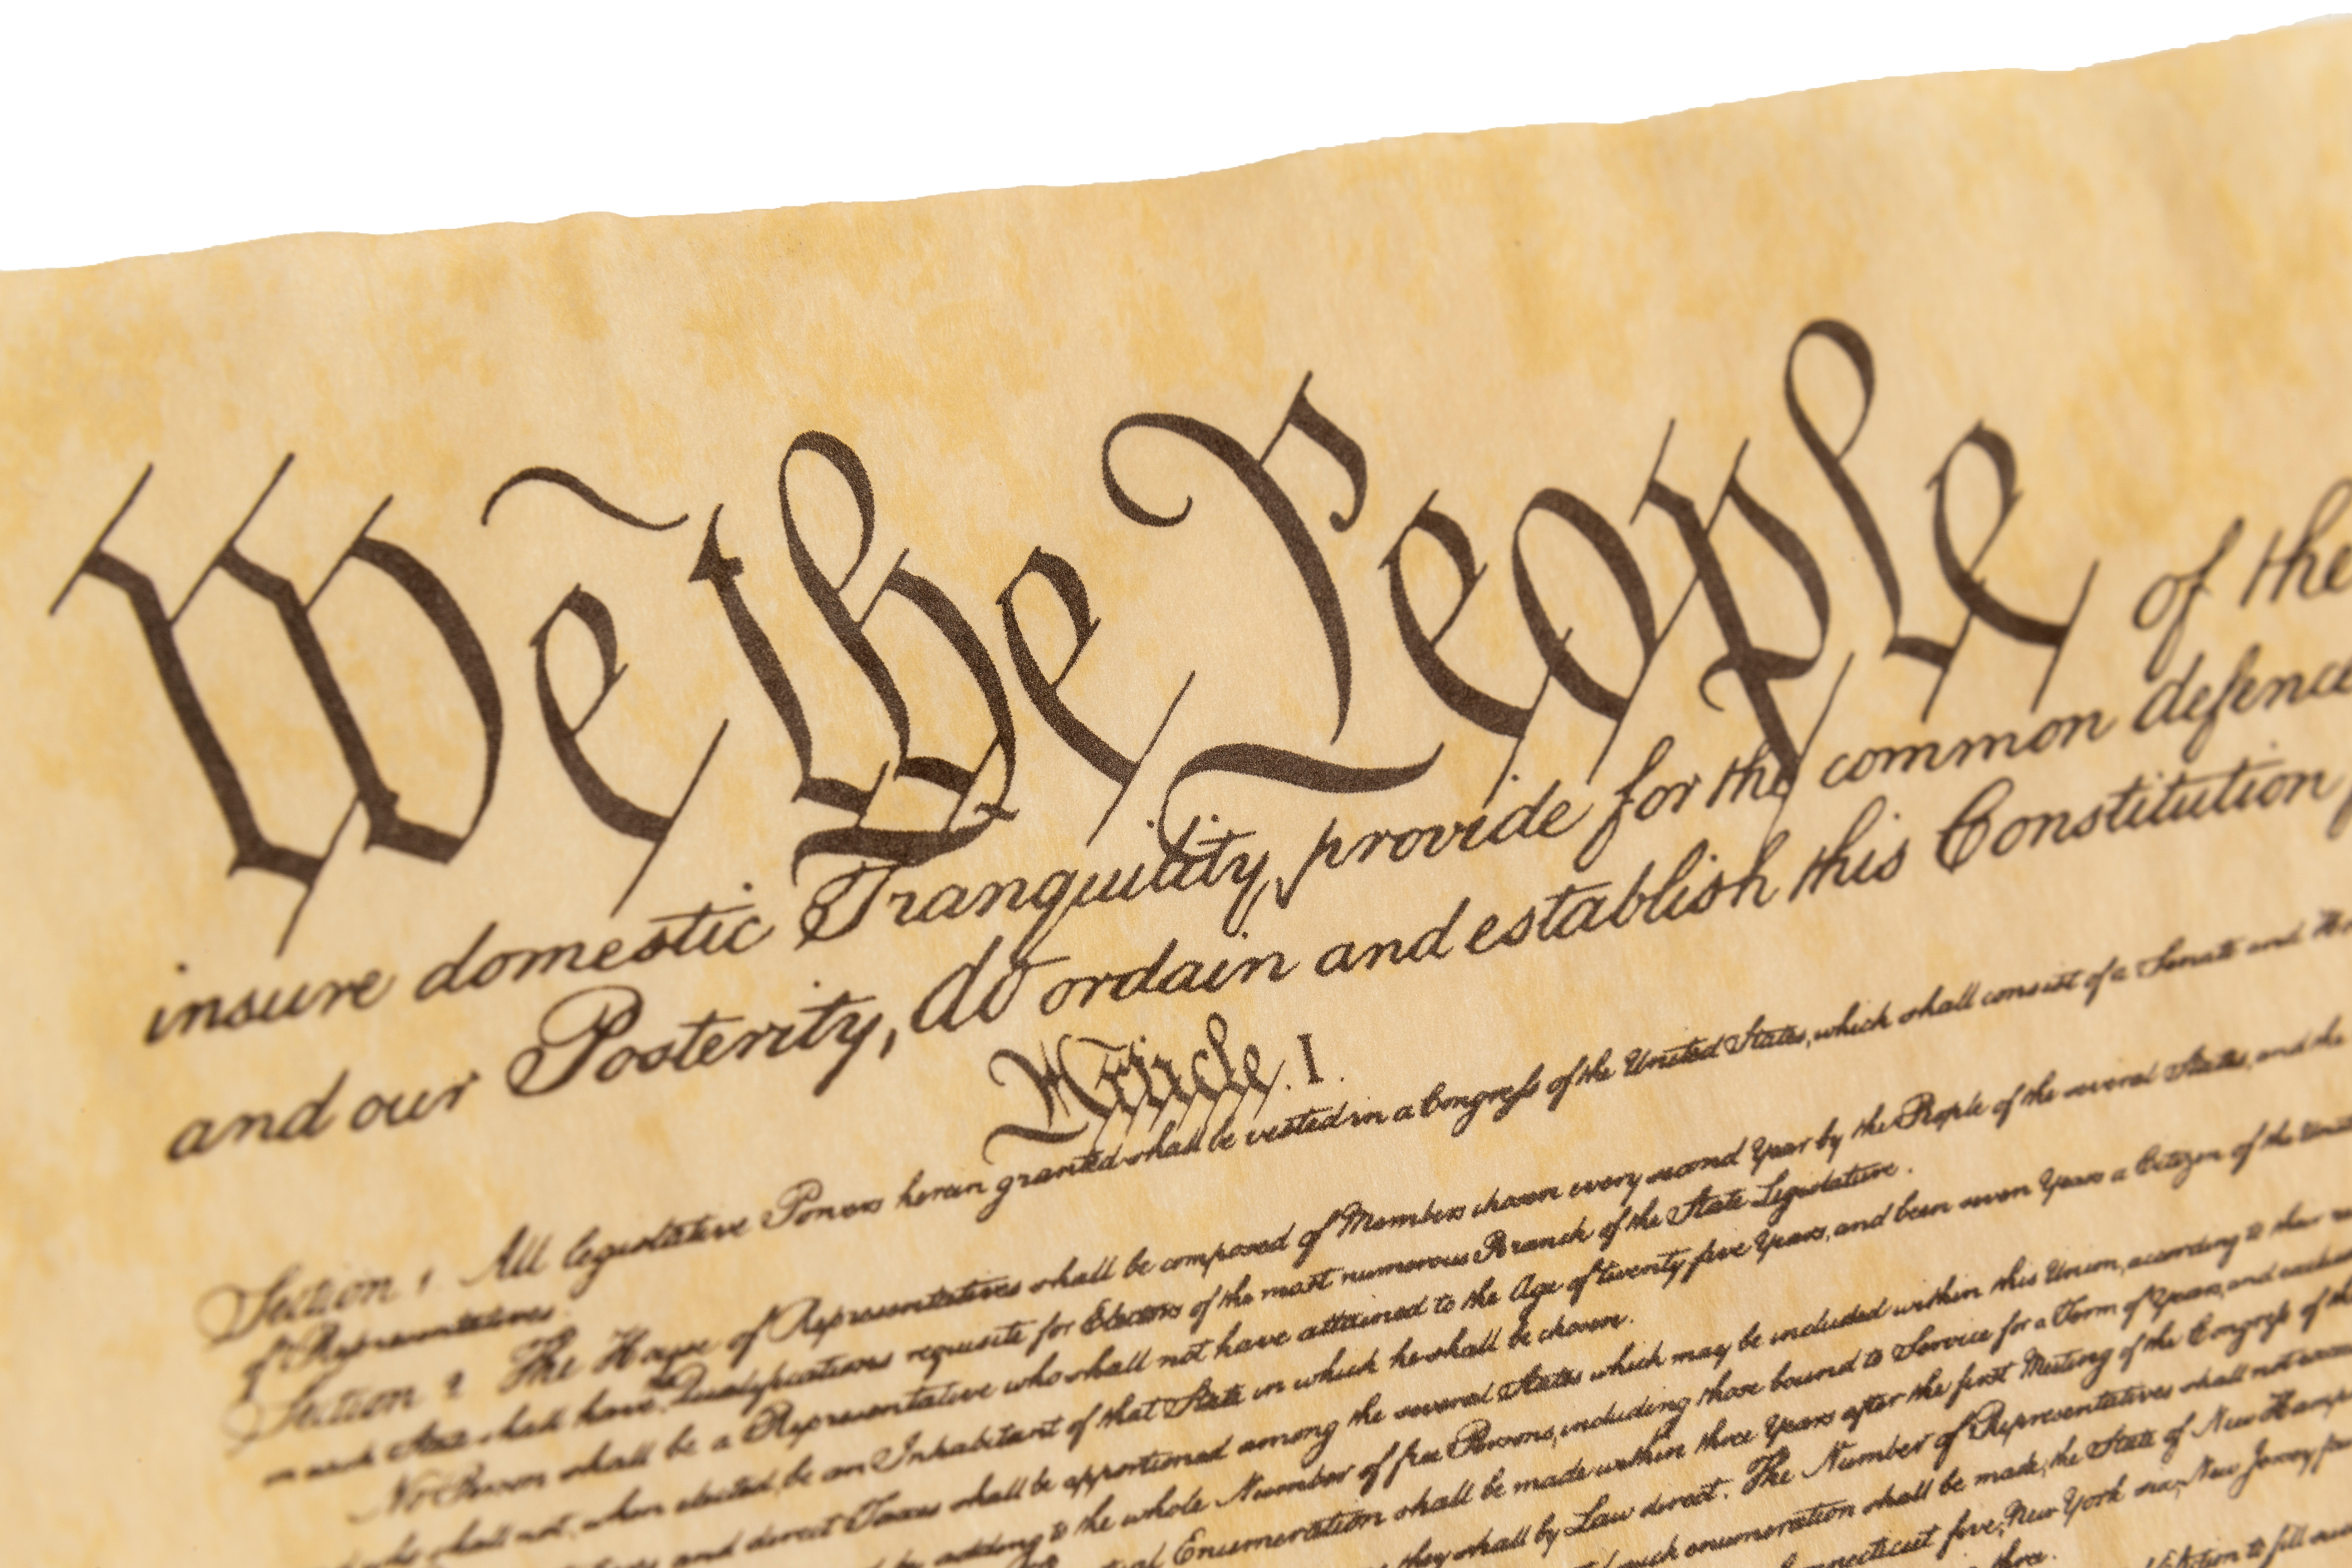 We the People of the
insure domestic Tranquility, provide for the common defence
and our Posterity, do ordain and establish this Constitution
Article. I.
Section 1. All legislative Powers herein granted shall be vested in a Congress of the United States, which shall consist of a Senate and
of Representatives.
Section 2. The House of Representatives shall be composed of Members chosen every second Year by the People of the several States, and the
in each State shall have the Qualifications requisite for Electors of the most numerous Branch of the State Legislature.
No Person shall be a Representative who shall not have attained to the Age of twenty five Years, and been seven Years a Citizen of the
who shall not, when elected, be an Inhabitant of that State in which he shall be chosen.
and direct Taxes shall be apportioned among the several States which may be included within this Union, according to their
by adding to the whole Number of free Persons, including those bound to Service for a Term of Years, and
Enumeration shall be made within three Years after the first Meeting of the Congress of the
they shall by Law direct. The Number of Representatives shall not
such enumeration shall be made, the State of New
five, New-York six, New Jersey
three.
Election to fill